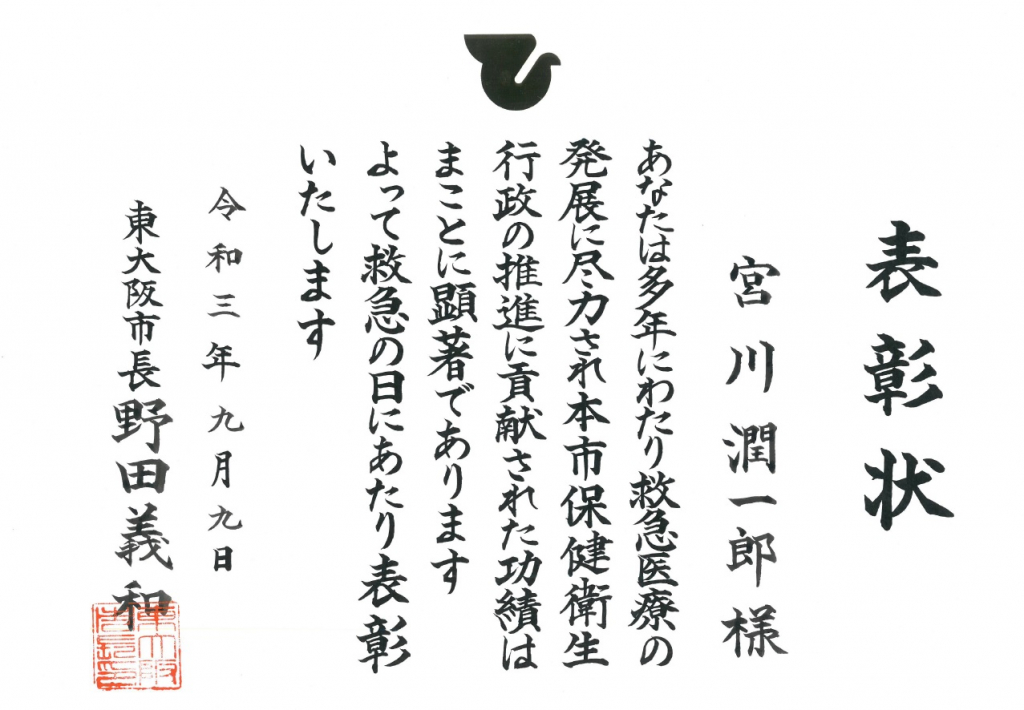 表彰状
宮川潤一郎様
あなたは多年にわたり救急医療の
発展に尽力され本市保健衛生
行政の推進に貢献された功績は
まことに顕著であります
よって救急の日にあたり表彰
いたします
令和三年九月九日
東大阪市長野田義和
東大阪
市長之印